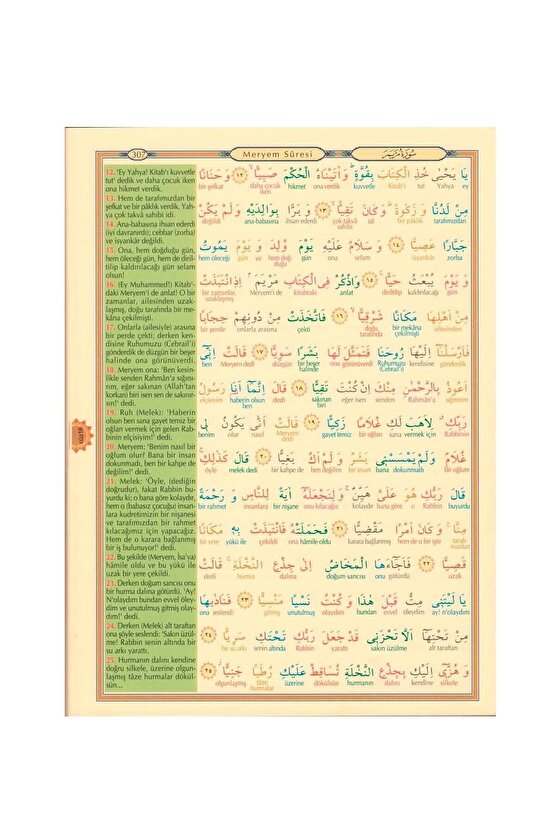 307
Meryem Sûresi
سورة مريم
12. 'Ey Yahya! Kitab'ı kuvvetle
tut' dedik ve daha çocuk iken
ona hikmet verdik.
13. Hem de tarafımızdan bir
şefkat ve bir pâklık verdik. Yah-
ya çok takvâ sahibi idi.
14. Ana-babasına ihsan ederdi
(iyi davranırdı); cebbar (zorba)
ve isyankâr değildi.
15. Ona, hem doğduğu gün,
hem öleceği gün, hem de diril-
tilip kaldırılacağı gün selam
olsun!
16. (Ey Muhammed!) Kitab'-
daki Meryem'i de anlat! O bir
zamanlar, ailesinden uzak-
laşmış, doğu tarafında bir me-
kâna çekilmişti.
17. Onlarla (ailesiyle) arasına
bir perde çekti; derken ken-
disine Ruhumuzu (Cebrail'i)
gönderdik de düzgün bir beşer
halinde ona görünüverdi.
18. Meryem ona: 'Ben kesin-
likle senden Rahmân'a sığını-
rım, eğer sakınan (Allah'tan
korkan) biri isen sen de sakınır-
sın!' dedi.
19. Ruh (Melek): 'Haberin
olsun ben sana gayet temiz bir
oğlan vermek için gelen Rab-
binin elçisiyim!' dedi.
20. Meryem: 'Benim nasıl bir
oğlum olur! Bana bir insan
dokunmadı, ben bir kahpe de
değilim!' dedi.
21. Melek: 'Öyle, (dediğin
doğrudur), fakat Rabbin bu-
yurdu ki; o bana göre kolaydır,
hem o (babasız çocuğu) insan-
lara kudretimizin bir nişanesi
ve tarafımızdan bir rahmet
kılacağımız için yapacağız.
Hem de o karara bağlanmış
bir iş bulunuyor!' dedi.
22. Bu şekilde (Meryem, İsa'ya)
hâmile oldu ve bu yükü ile
uzak bir yere çekildi.
23. Derken doğum sancısı onu
bir hurma dalına götürdü. 'Ay!
N'olaydım bundan evvel öley-
dim ve unutulmuş gitmiş olay-
dım!' dedi.
24. Derken (Melek) alt taraftan
ona şöyle seslendi: 'Sakın üzül-
me! Rabbin senin altında bir
su arkı yarattı.
25. Hurmanın dalını kendine
doğru silkele, üzerine olgun-
laşmış tâze hurmalar dökül-
sün...
يَا يَحْيٰى خُذِ الْكِتَابَ بِقُوَّةٍ وَ اٰتَيْنَاهُ الْحُكْمَ صَبِيًّا ﴿١٢﴾ وَ حَنَانًا
ey Yahya tut Kitab'ı kuvvetle ona verdik hikmet daha çocuk iken bir şefkat
مِنْ لَدُنَّا وَ زَكٰوةً وَ كَانَ تَقِيًّا ﴿١٣﴾ وَ بَرًّا بِوَالِدَيْهِ وَ لَمْ يَكُنْ
tarafımızdan ve bir pâklık idi çok takvâ sahibi ihsan ederdi ana-babasına değildi
جَبَّارًا عَصِيًّا ﴿١٤﴾ وَ سَلَامٌ عَلَيْهِ يَوْمَ وُلِدَ وَ يَوْمَ يَمُوتُ
zorba isyankâr selam ona gün doğduğu ve gün hem öleceği
وَ يَوْمَ يُبْعَثُ حَيًّا ﴿١٥﴾ وَاذْكُرْ فِى الْكِتَابِ مَرْيَمَ اِذِ انْتَبَذَتْ
gün kaldırılacağı diriltilip anlat kitabtaki Meryem'i de bir zamanlar, uzaklaşmış
مِنْ اَهْلِهَا مَكَانًا شَرْقِيًّا ﴿١٦﴾ فَاتَّخَذَتْ مِنْ دُونِهِمْ حِجَابًا
ailesinden bir mekâna çekilmişti doğu tarafında çekti onlarla arasına bir perde
فَاَرْسَلْنَا اِلَيْهَا رُوحَنَا فَتَمَثَّلَ لَهَا بَشَرًا سَوِيًّا ﴿١٧﴾ قَالَتْ اِنّٖى
gönderdik kendisine Ruhumuzu (Cebrail'i) görünüverdi ona bir beşer halinde düzgün dedi ben
اَعُوذُ بِالرَّحْمٰنِ مِنْكَ اِنْ كُنْتَ تَقِيًّا ﴿١٨﴾ قَالَ اِنَّمَا اَنَا رَسُولُ
sığınırım Rahmân'a senden eğer isen sakınan biri dedi haberin olsun ben elçisiyim
رَبِّكِ لِاَهَبَ لَكِ غُلَامًا زَكِيًّا ﴿١٩﴾ قَالَتْ اَنّٰى يَكُونُ لٖى
Rabbinin vermek için sana bir oğlan gayet temiz dedi nasıl olur benim
غُلَامٌ وَ لَمْ يَمْسَسْنٖى بَشَرٌ وَ لَمْ اَكُ بَغِيًّا ﴿٢٠﴾ قَالَ كَذٰلِكِ
bir oğlum bana dokunmadı bir insan ben değilim bir kahpe de melek dedi öyle
قَالَ رَبُّكِ هُوَ عَلَىَّ هَيِّنٌ وَ لِنَجْعَلَهُ اٰيَةً لِلنَّاسِ وَ رَحْمَةً
buyurdu Rabbin o bana göre kolaydır onu kılacağız bir nişane insanlara bir rahmet
مِنَّا وَ كَانَ اَمْرًا مَقْضِيًّا ﴿٢١﴾ فَحَمَلَتْهُ فَانْتَبَذَتْ بِهٖ مَكَانًا
tarafımızdan hem de o bir iştir karara bağlanmış ona hâmile oldu çekildi yükü ile bir yere
قَصِيًّا ﴿٢٢﴾ فَاَجَٓاءَهَا الْمَخَاضُ اِلٰى جِذْعِ النَّخْلَةِ قَالَتْ
uzak onu götürdü doğum sancısı dalına hurma dedi
يَا لَيْتَنٖى مِتُّ قَبْلَ هٰذَا وَ كُنْتُ نَسْيًا مَنْسِيًّا ﴿٢٣﴾ فَنَادٰيهَا
ay! n'olaydım öleydim evvel bundan olaydım unutulmuş gitmiş ona seslendi
مِنْ تَحْتِهَٓا اَلَّا تَحْزَنٖى قَدْ جَعَلَ رَبُّكِ تَحْتَكِ سَرِيًّا ﴿٢٤﴾
alt taraftan sakın üzülme yarattı Rabbin senin altında bir su arkı
وَ هُزّٖٓى اِلَيْكِ بِجِذْعِ النَّخْلَةِ تُسَاقِطْ عَلَيْكِ رُطَبًا جَنِيًّا ﴿٢٥﴾
silkele kendine dalını hurmanın dökülsün üzerine tâze hurmalar olgunlaşmış